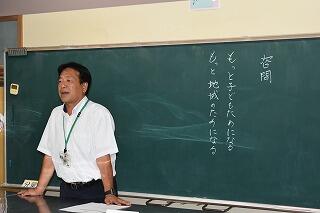 答問
もっと子どもためになる
もっと地域のためになる